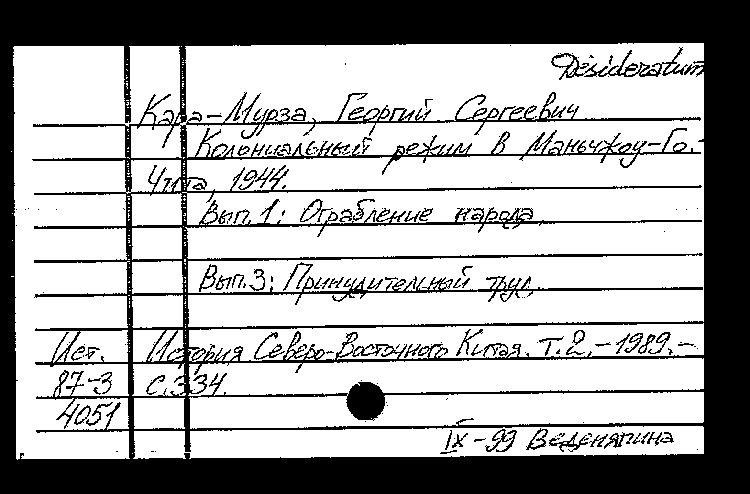 Desideratum
Кара-Мурза, Георгий Сергеевич
Колониальный режим в Маньчжоу-Го.-
Чита, 1944.
Вып.1: Ограбление народа.
Вып.3: Принудительный труд.
Ист. История Северо-Восточного Китая. Т.2.-1989.-
87-3 С.334.
4051
IX-99 Веденяпина